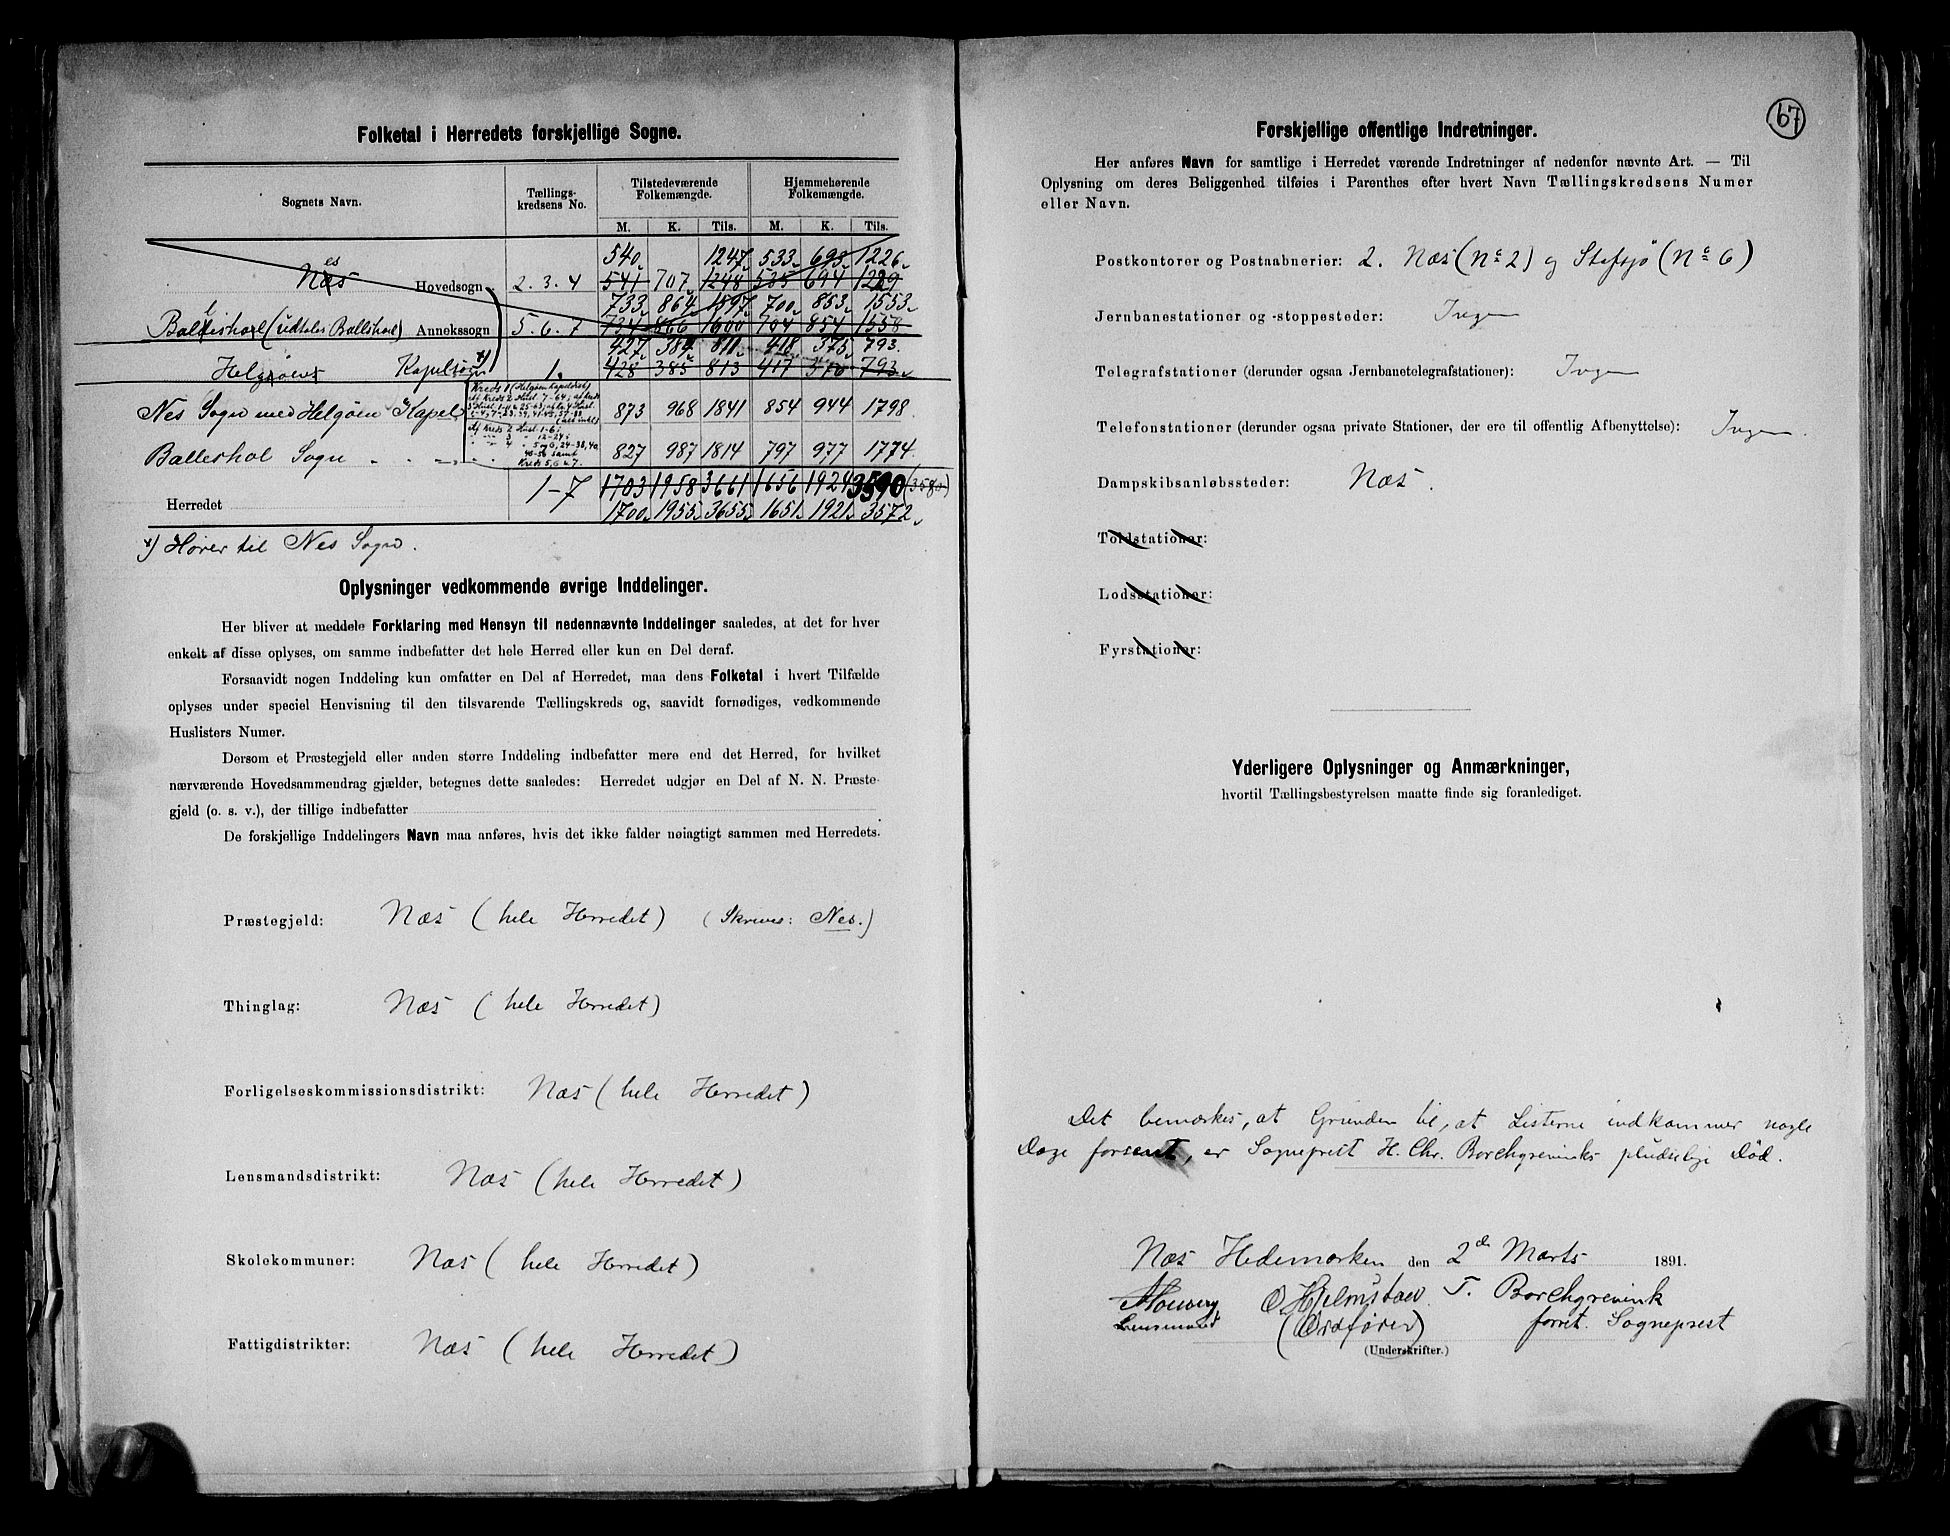 Folketal i Herredets forskjellige Sogne.
Sognets Navn. Tællings-kredsens No. Tilstedeværende Folkemængde. Hjemmehørende Folkemængde.
M. K. Tils. M. K. Tils.
540 1247 533 693 1226
Næs es Hovedsogn 2. 3. 4 541 707 1248 535 694 1229
733 864 1897 700 853 1553
Balleshol (udtales Balleshol) Annekssogn 5. 6. 7 734 866 1600 704 854 1558
427 384 811 418 375 793
Helgøens Kapelsogn x) 1. 428 385 813 417 376 793
Kreds 1 (Helgøen kapeldist.)
Nes Sogn med Helgøen Kapel 873 968 1841 854 944 1798
Af Kreds 2 Husl. 1-6;
Balleshol Sogn 827 987 1814 797 977 1774
Kreds 5, 6 & 7.
Herredet 1-7 1703 1958 3661 1656 1924 3590 (3580)
1700 1955 3655 1651 1921 3572
x) Hører til Nes Sogn.
Oplysninger vedkommende øvrige Inddelinger.
Her bliver at meddele Forklaring med Hensyn til nedennævnte Inddelinger saaledes, at det for hver
enkelt af disse oplyses, om samme indbefatter det hele Herred eller kun en Del deraf.
Forsaavidt nogen Inddeling kun omfatter en Del af Herredet, maa dens Folketal i hvert Tilfælde
oplyses under speciel Henvisning til den tilsvarende Tællingskreds og, saavidt fornødiges, vedkommende
Huslisters Numer.
Dersom et Præstegjeld eller anden større Inddeling indbefatter mere end det Herred, for hvilket
nærværende Hovedsammendrag gjælder, betegnes dette saaledes: Herredet udgjør en Del af N. N. Præste-
gjeld (o. s. v.), der tillige indbefatter
De forskjellige Inddelingers Navn maa anføres, hvis det ikke falder nøiagtigt sammen med Herredets.
Præstegjeld: Næs (hele Herredet) (Skrives: Nes.)
Thinglag: Næs (hele Herredet)
Forligelseskommissionsdistrikt: Næs (hele Herredet)
Lensmandsdistrikt: Næs (hele Herredet)
Skolekommuner: Næs (hele Herredet)
Fattigdistrikter: Næs (hele Herredet)
67
Forskjellige offentlige Indretninger.
Her anføres Navn for samtlige i Herredet værende Indretninger af nedenfor nævnte Art. — Til
Oplysning om deres Beliggenhed tilføies i Parenthes efter hvert Navn Tællingskredsens Numer
eller Navn.
Postkontorer og Postaabnerier: 2. Næs (No 2) og Stafsjø (No 6)
Jernbanestationer og -stoppesteder: Ingen
Telegrafstationer (derunder ogsaa Jernbanetelegrafstationer): Ingen
Telefonstationer (derunder ogsaa private Stationer, der ere til offentlig Afbenyttelse): Ingen.
Dampskibsanløbssteder: Næs.
Toldstationer:
Lodsstationer:
Fyrstationer:
Yderligere Oplysninger og Anmærkninger,
hvortil Tællingsbestyrelsen maatte finde sig foranlediget.
Det bemærkes, at Grunden til, at Listerne indkommer nogle
Dage forsent, er Sogneprest H. Chr. Borchgrevinks pludselige Død.
Næs Hedemarken den 2den Marts 1891.
O. Hjelmstad T. Borchgrevink
Lensmand (Ordfører) forret. Sogneprest
(Underskrifter.)